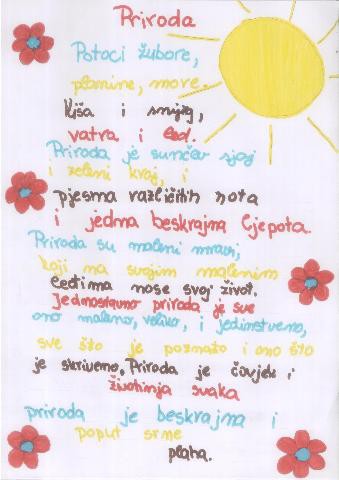 Priroda
Potoci žubore,
planine, more.
Kiša i snijeg,
vatra i led.
Priroda je sunčev sjaj
i zeleni kraj, i
pjesma različitih nota
i jedna beskrajna ljepota.
Priroda su maleni mravi,
koji na svojim malenim
leđima nose svoj život.
Jednostavno priroda je sve
ono maleno, veliko, i jedinstveno,
sve što je poznato i ono što
je skriveno, Priroda je čovjek i
životinja svaka
priroda je beskrajna i
poput srne
plaha.